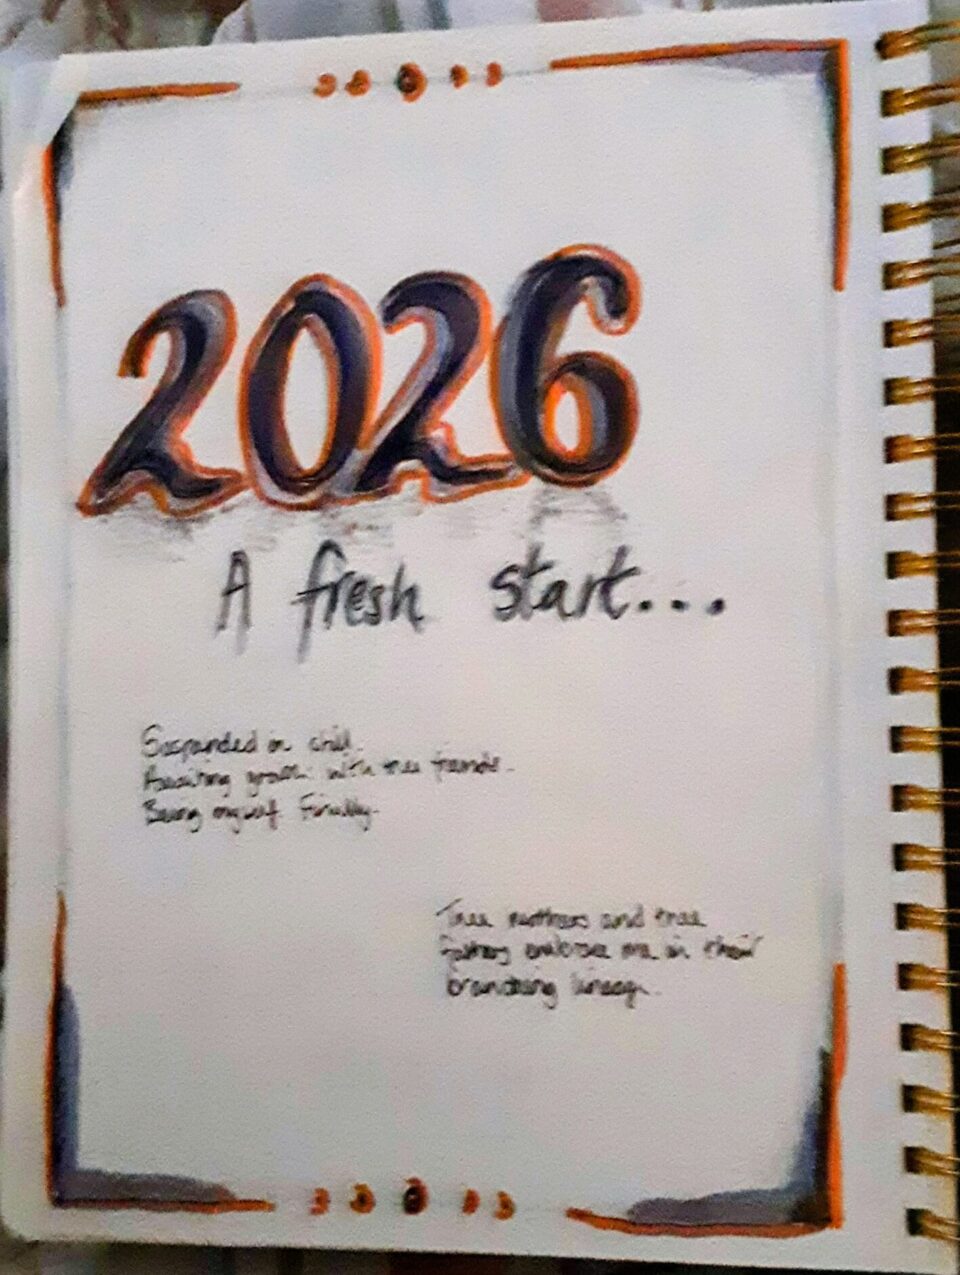 2026
A fresh start...
Suspended in chill.
Awaiting growth with tree friends.
Being myself. Finally.
Tree mothers and tree
fathers embrace me in their
branching lineage.